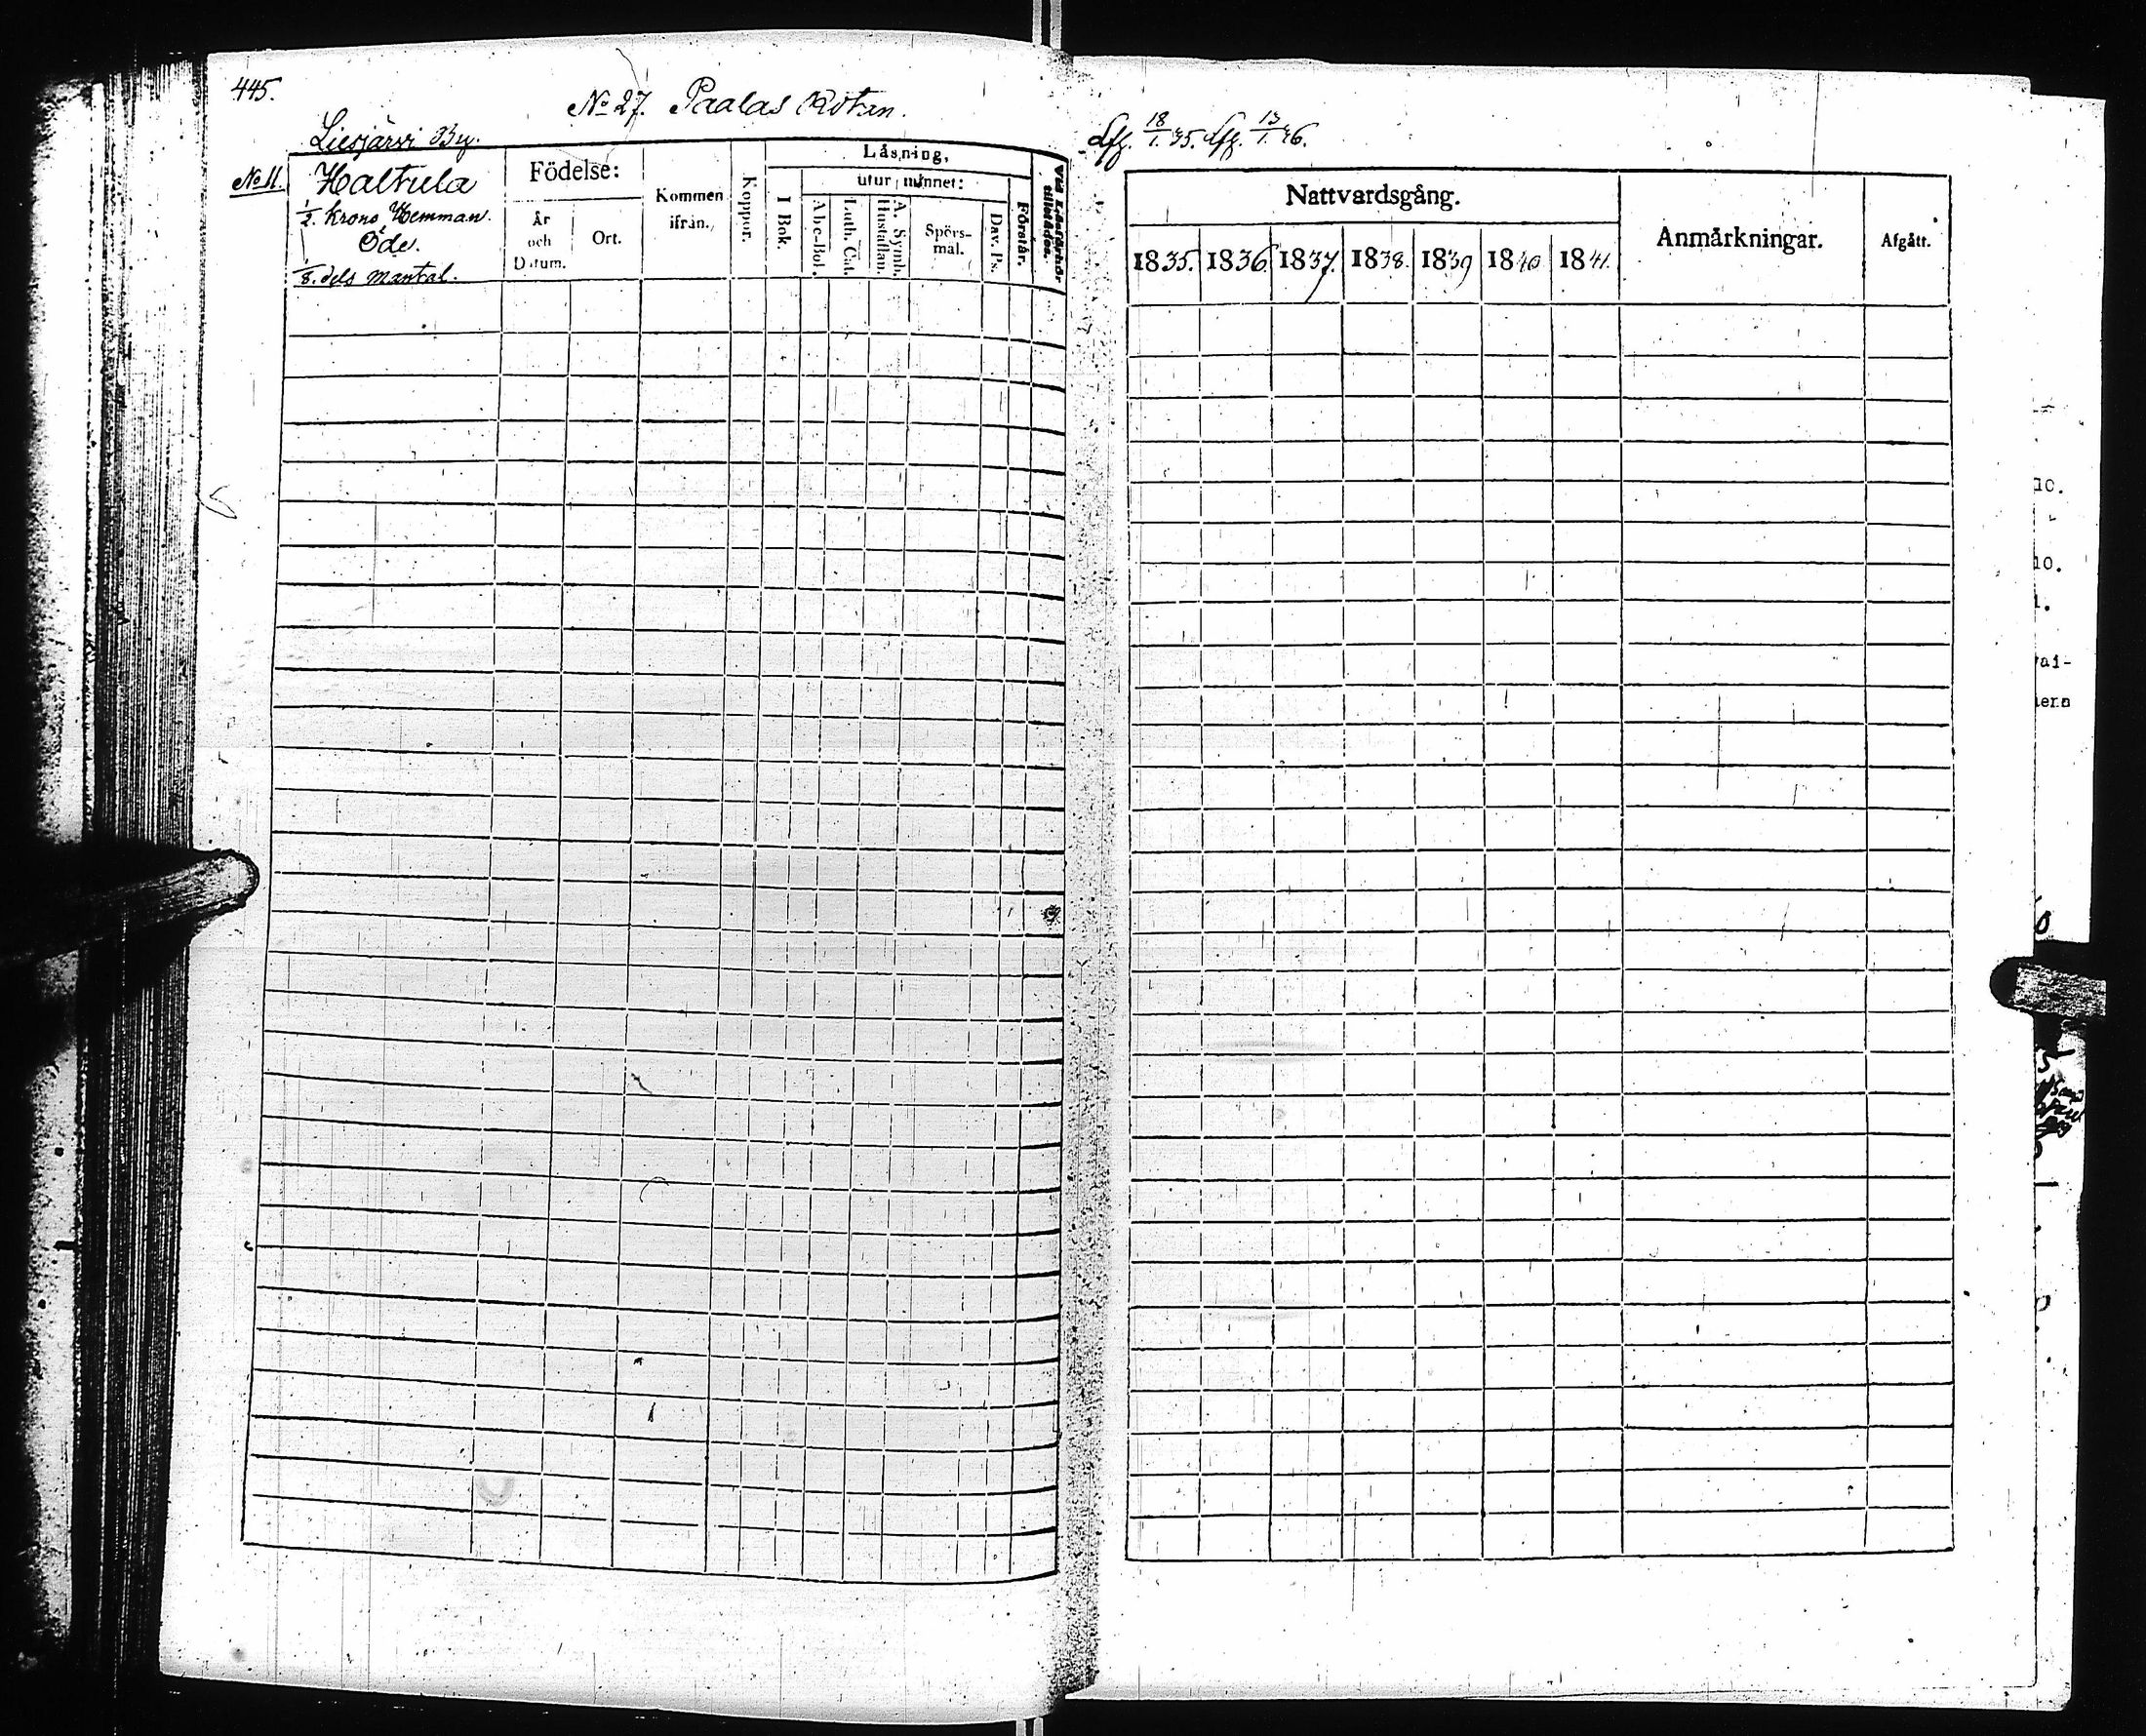 445.
No 27. Paalas Rotan.
Liesjärvi By.
No 11.
Haltula
1/2. Krono Hemman.
Öde.
1/8. dels Mantal.
Födelse:
År
och
Datum.
Ort.
Kommen
ifrån.
Koppor.
Läsning,
utur minnet:
I Bok.
Abc-Bok.
Luth. Cat.
A. Symb.
Hustaflan.
Spörs-
mål.
Dav. Ps.
Förstår.
Vid Läsförhör
tillstådes.
18/1. 35. 13/1. 36.
Nattvardsgång.
1835. 1836. 1837. 1838. 1839 1840 1841.
Anmärkningar.
Afgått.
10.
10.
1.